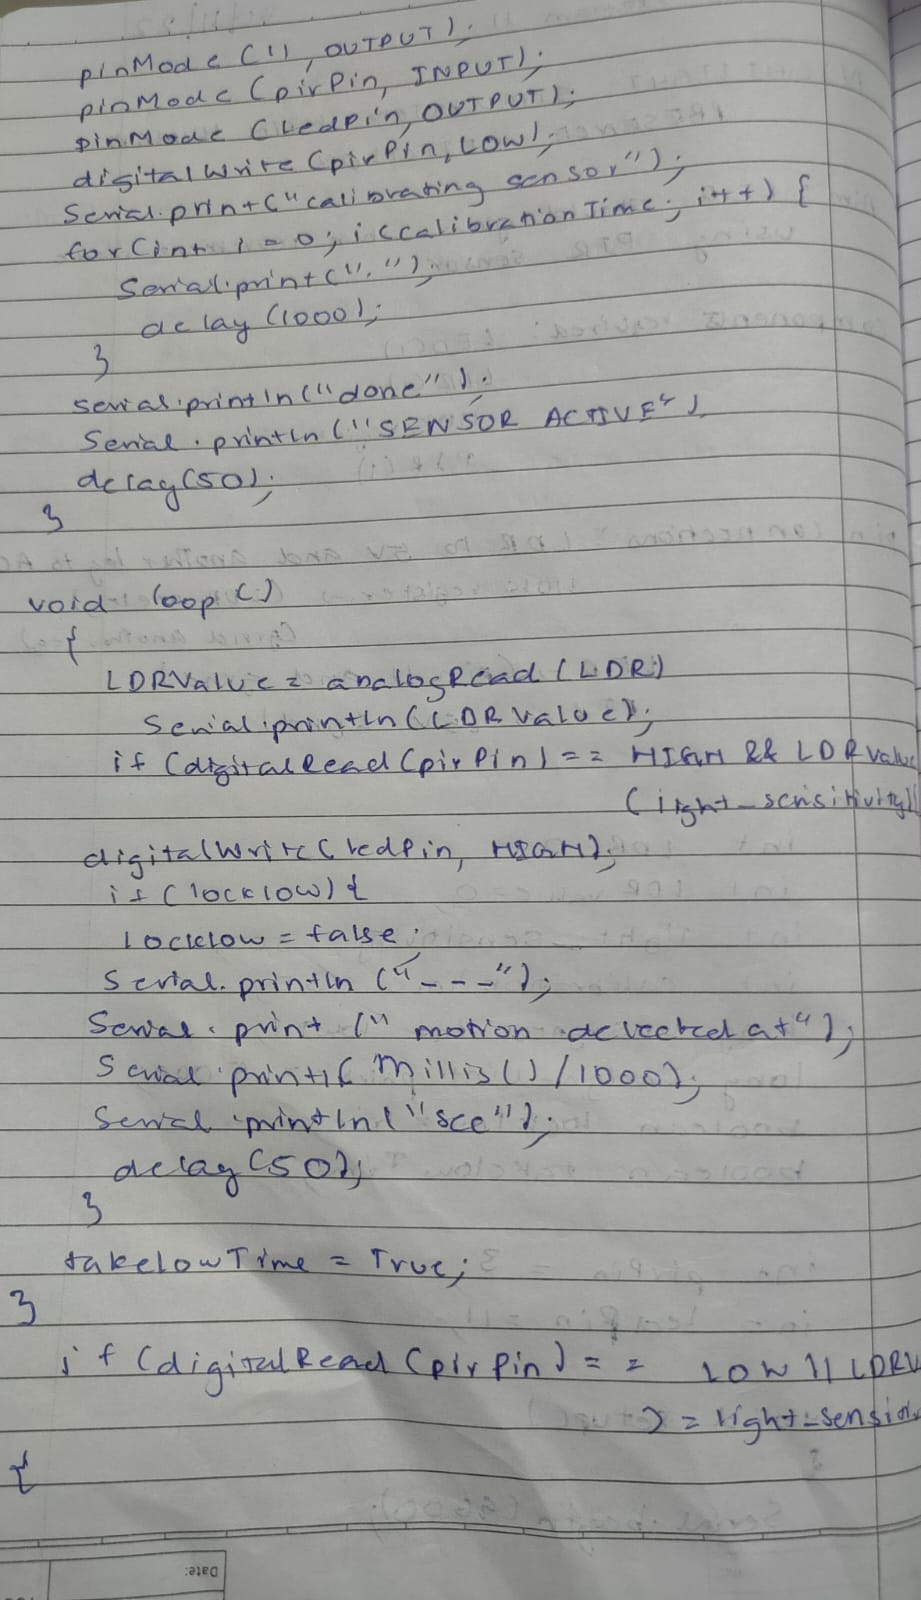 pinMode (11, OUTPUT);
pinMode (pirPin, INPUT);
pinMode (ledPin, OUTPUT);
digitalWrite (pirPin, LOW);
Serial.print("calibrating sensor");
for(int i = 0; i<calibrationTime; i++) {
Serial.print(".");
delay (1000);
}
serial.println("done");
Serial.println("SENSOR ACTIVE")
delay(50);
}
void loop()
{
LDRValue = analogRead (LDR)
Serial.println(LDRValue);
if (digitalRead(pirPin) == HIGH && LDRValue
(light_sensitivity)
digitalWrite(ledPin, HIGH);
if (locklow){
locklow = false;
Serial.println ("---");
Serial.print (" motion detected at");
Serial print( Millis()/1000);
Serial.println("sce");
delay(50);
}
takelowTime = True;
}
if (digitalRead (pirPin) == LOW || LDRV
{
Date: